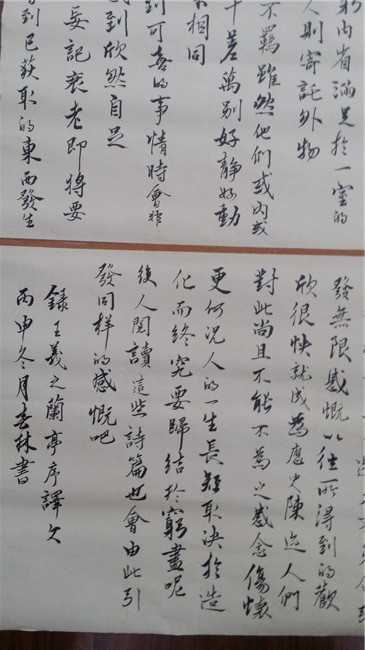 內省滿足於一室的
人則寄託外物
不羈雖然他們或內或
千差萬別好靜好動
相同
到可喜的事情時會非
到欣然自足
妄記衰老即將要
到已获取的東西發生
發無限感慨以往所得到的歡
欣很快就成為歷史陳迹人們
對此尚且不能不為之感念傷懷
更何況人的一生長短取決於造
化而終究要歸結於窮盡呢
後人閱讀這些詩篇也會由此引
發同樣的感慨吧
錄王羲之蘭亭序譯文
丙申冬月春林書